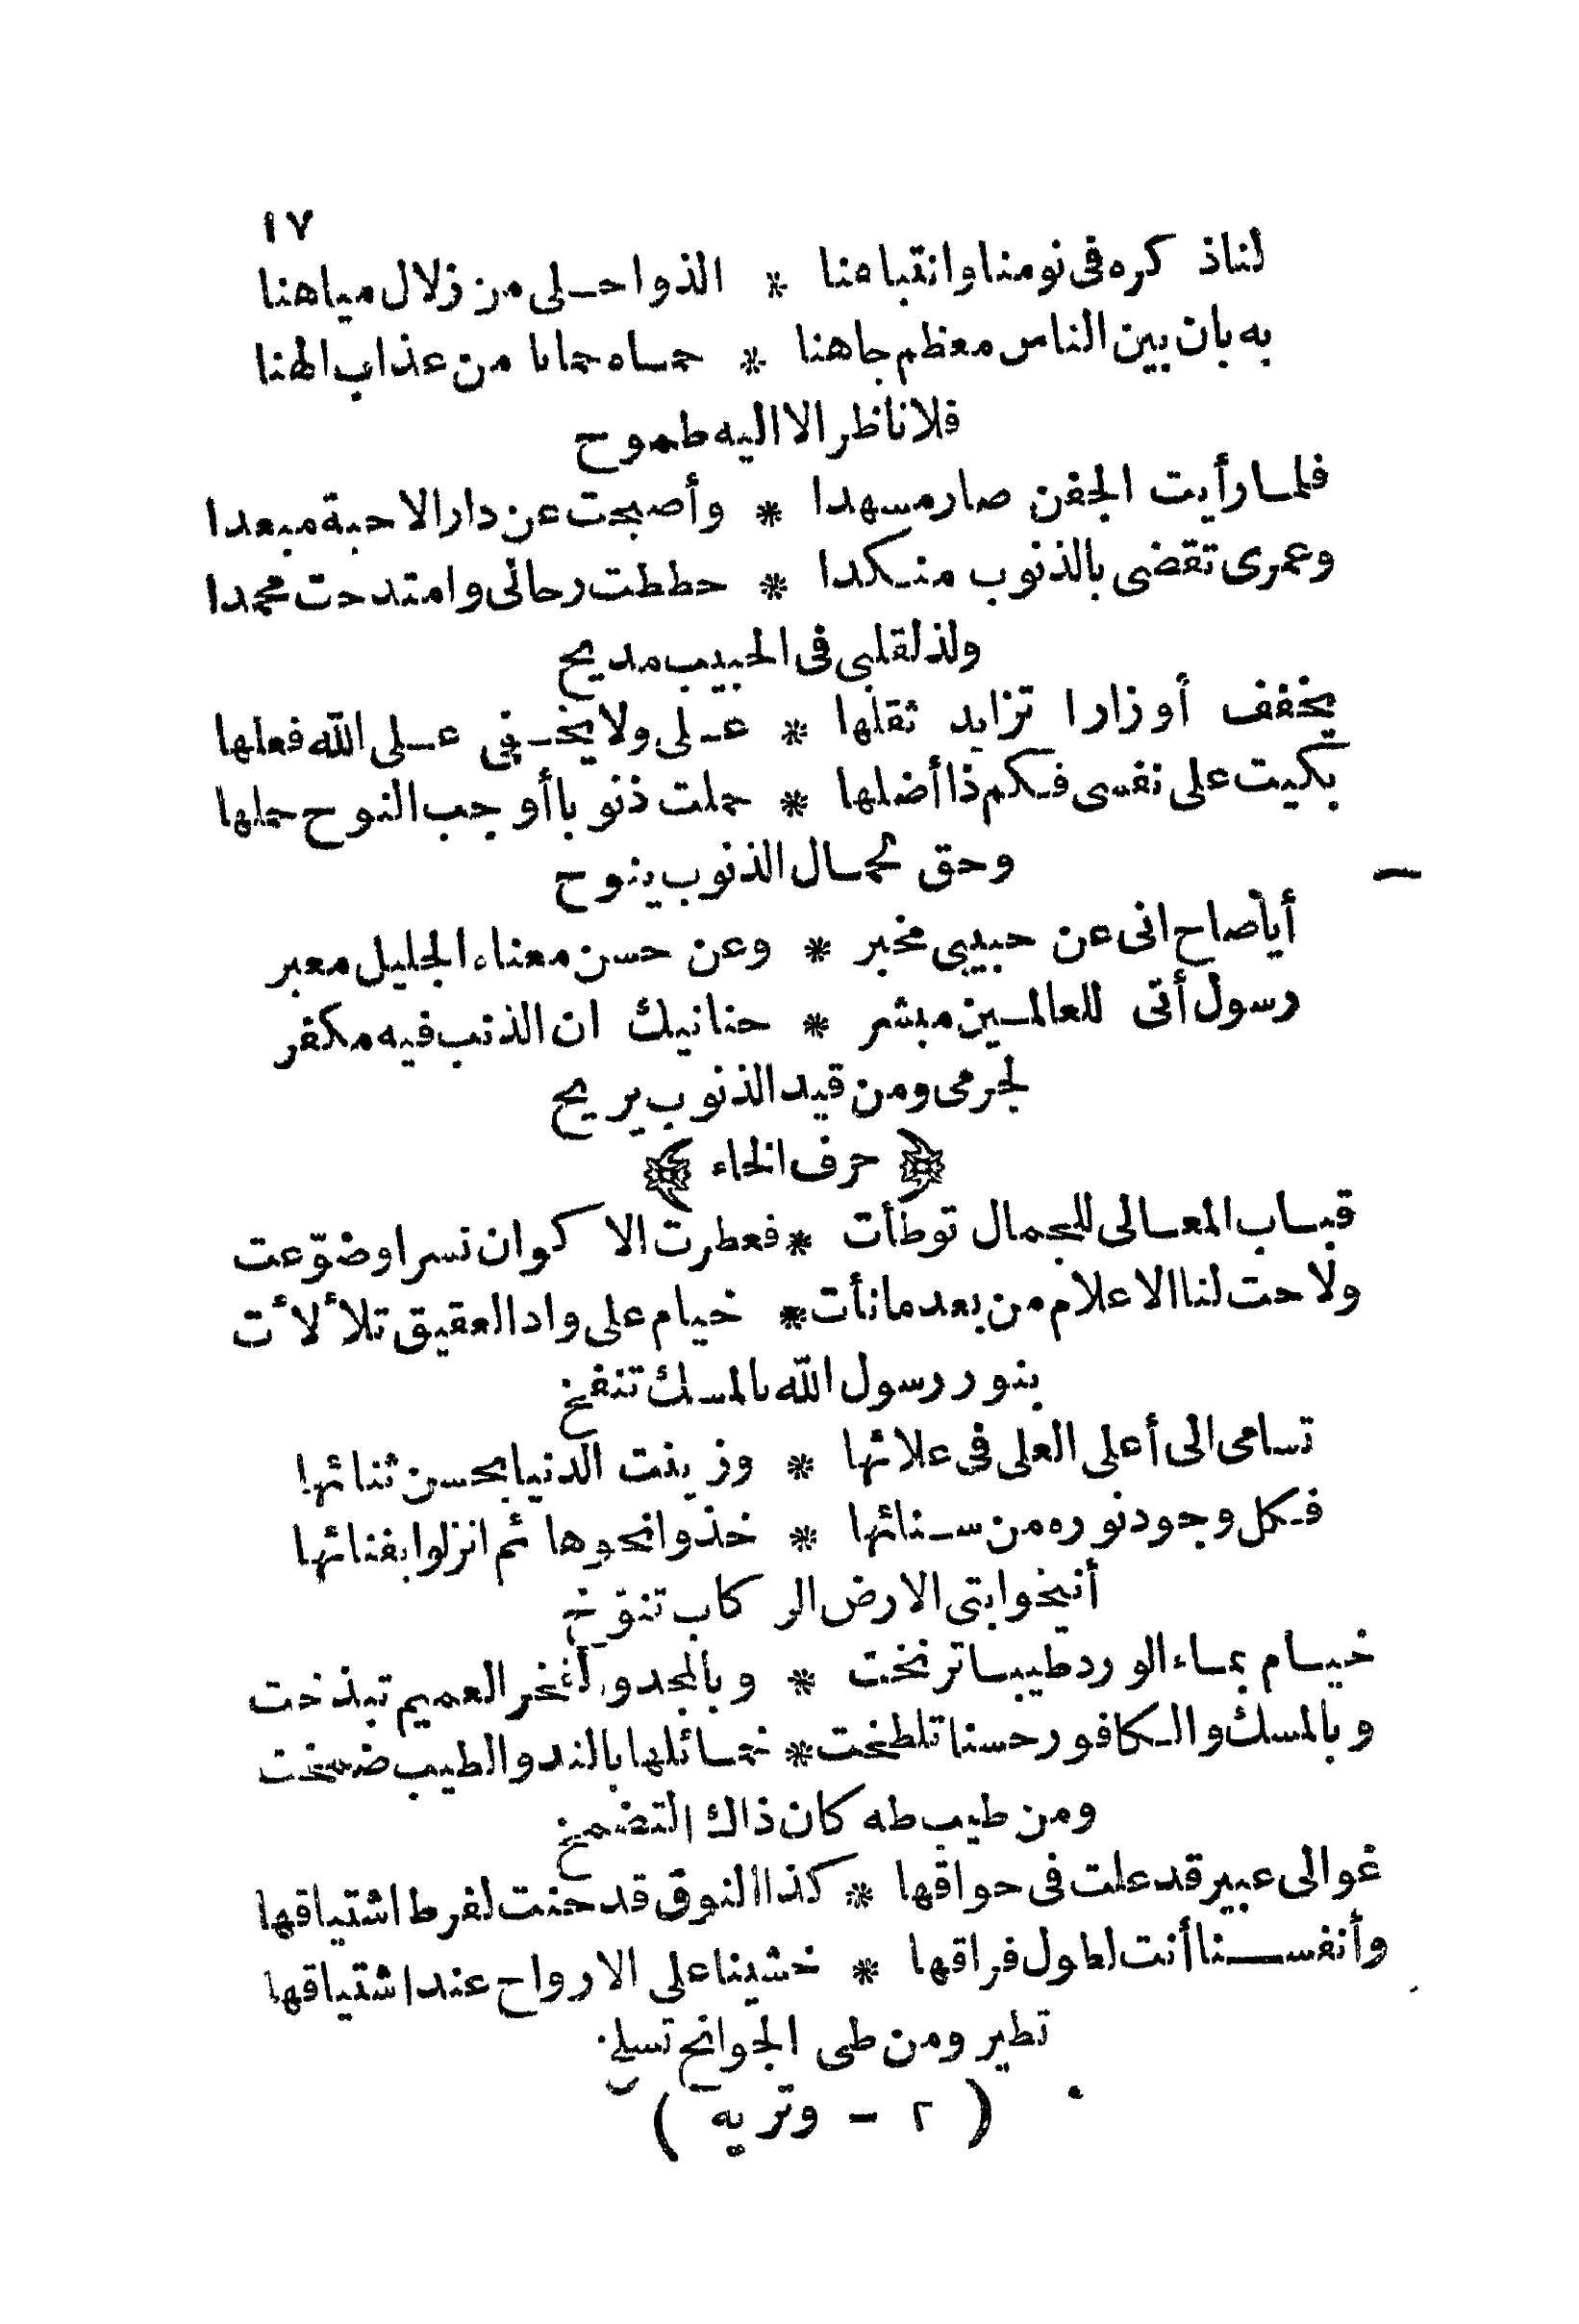 ١٧
لنا ذكره فى نومنا وانتباهنا * الذ واحلى من زلال مياهنا
به بان بين الناس معظم جاهنا * حماه حمانا من عذاب الهنا
فلا ناظر الا اليه طموح
فلما رأيت الجفن صار مسهدا * وأصبحت عن دار الاحبة مبعدا
وعمرى تقضى بالذنوب منكدا * حططت رحالى وامتدحت محمدا
ولذ لقلبى فى الحبيب مديح
يخفف أوزارا تزايد ثقلها * على ولا يخفى على الله فعلها
بكيت على نفسى فكم ذا أضلها * حملت ذنوبا أوجب النوح حملها
وحق لحمال الذنوب ينوح
أيا صاح انى عن حبيبى مخبر * وعن حسن معناه الجليل معبر
رسول أتى للعالمين مبشر * حنانيك ان الذنب فيه مكفر
لجرمى ومن قيد الذنوب يريح
﴿ حرف الخاء ﴾
قباب المعالى للجمال توطأت * فعطرت الاكوان نسرا وضوّعت
ولاحت لنا الاعلام من بعد ما نأت * خيام على واد العقيق تلألأت
بنور رسول الله بالمسك تنفخ
تسامى الى أعلى العلى فى علائها * وزينت الدنيا بحسن ثنائها
فكل وجود نوره من سنائها * خذوا نحوها ثم انزلوا بفنائها
أنيخوا بتى الارض الركاب تنوّخ
خيام بماء الورد طيبا ترنخت * وبالمجد والفخر العميم تبذخت
وبالمسك والكافور حسنا تلطخت * خمائلها بالند والطيب ضمخت
ومن طيب طه كان ذاك التضمخ
غوالى عبير قد علت فى حواقها * كذا النوق قد حنت لفرط اشتياقها
وأنفسنا أنت لطول فراقها * خشينا على الارواح عند اشتياقها
تطير ومن طى الجوانح تسلخ
( ٢ - وتريه )